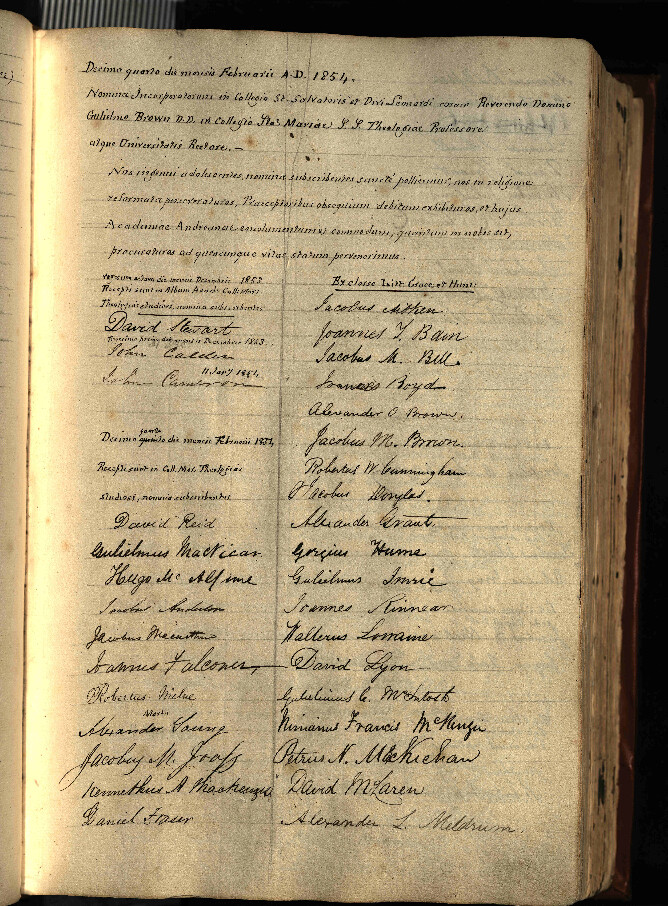 Decimo quarto die mensis Februarii A.D. 1854.
Nomina Incorporatorum in Collegio Sti. Salvatoris et Divi Leonardi coram Reverendo Domino
Gulielmo Brown D.D. in Collegio Stae. Mariae S. S. Theologiae Professore
atque Universitatis Rectore.—
Nos ingenui adolescentes, nomina subscribentes sancte pollicemur, nos in religione
reformata perseveraturos, Praeceptoribus obsequium debitum exhibituros, et hujus
Academiae Andreanae emolumentum et commodum, quantum in nobis sit,
procuraturos ad quemcunque vitae statum pervenerimus.
die mensis Decembris 1853
Recepti sunt in Album Acad.
Theologiae studiosi, nomina subscribentes
David Stewart
die mensis Decembris 1853
John Calder
11 Jany 1854
John
Decimo quarto die mensis Februarii 1854,
Recepti sunt in Coll. Mar. Theologiae
studiosi, nomina subscribentes
David Reid
Gulielmus MacVicar
Hugo Mc Alpine
Jacobus Anderson
Jacobus
Joannes Falconer
Robertus Milne
Alexander Young
Jacobus M.
Kennethus A Mackenzie
Daniel Fraser
Ex classe Litt. Graec. et Hum:
Jacobus Aitken
Joannes Y. Bain
Jacobus M. Bell.
Boyd
Alexander O Brown.
Jacobus M. Brown.
Robertus W. Cunningham
Jacobus Douglas.
Alexander Grant
Gorgius Hume
Gulielmus Imrie
Joannes Kinnear
Walterus Lorraine
David Lyon
Gulielmus C. McIntosh
Ninianus Francis McKenzie
Petrus N. MacKichan
David McLaren
Alexander L. Meldrum.